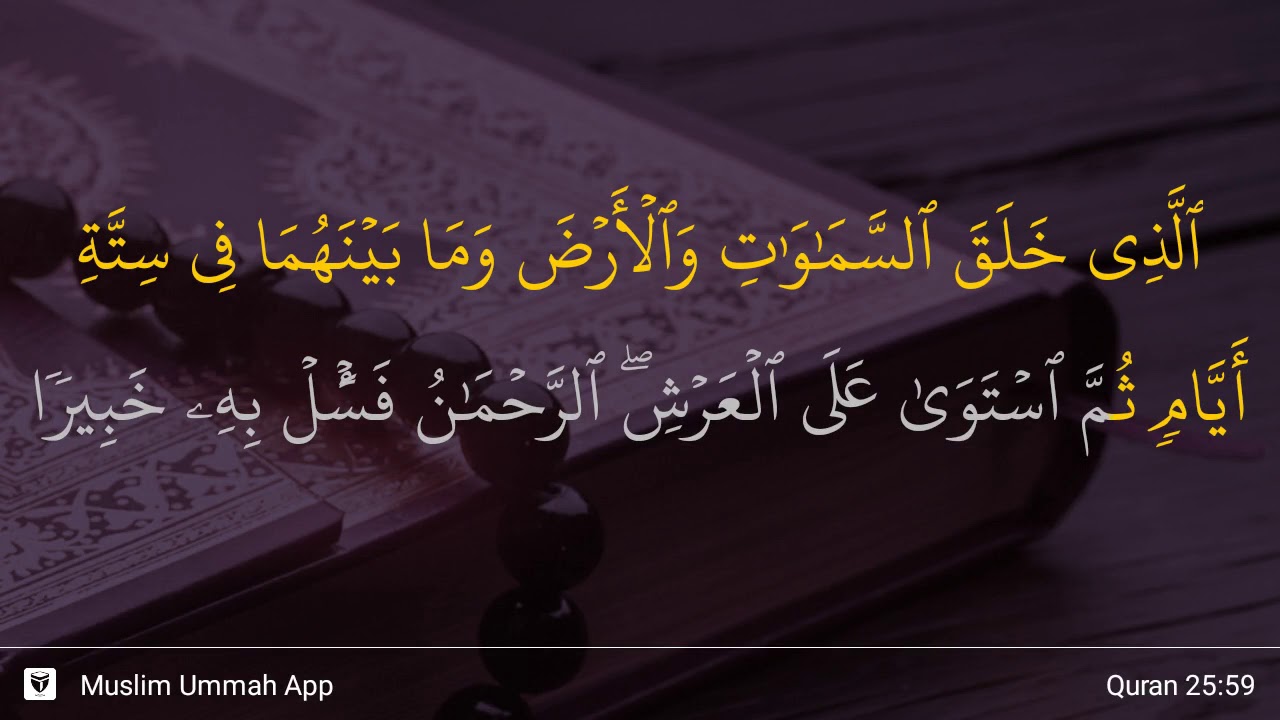 ٱلَّذِى خَلَقَ ٱلسَّمَـٰوَٰتِ وَٱلْأَرْضَ وَمَا بَيْنَهُمَا فِى سِتَّةِ
أَيَّامٍ ثُمَّ ٱسْتَوَىٰ عَلَى ٱلْعَرْشِ ۖ ٱلرَّحْمَـٰنُ فَسْـَٔلْ بِهِۦ خَبِيرًا
Muslim Ummah App
Quran 25:59